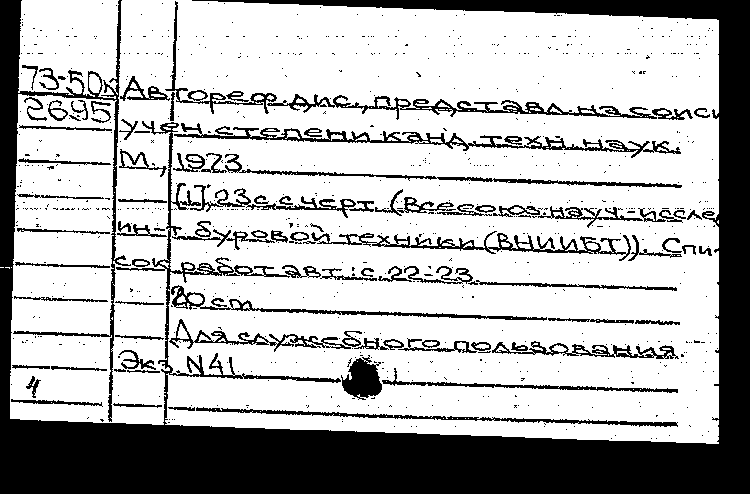 73-50к Автореф. дис., представл. на соиск
2695 учен. степени канд. техн. наук.
М., 1973.
[1], 23 с. с черт. (Всесоюз. науч.-исслед
ин-т буровой техники (ВНИИБТ)). Спи-
сок работ авт.: с. 22-23
20 cm
Для служебного пользования.
Экз. N41
4